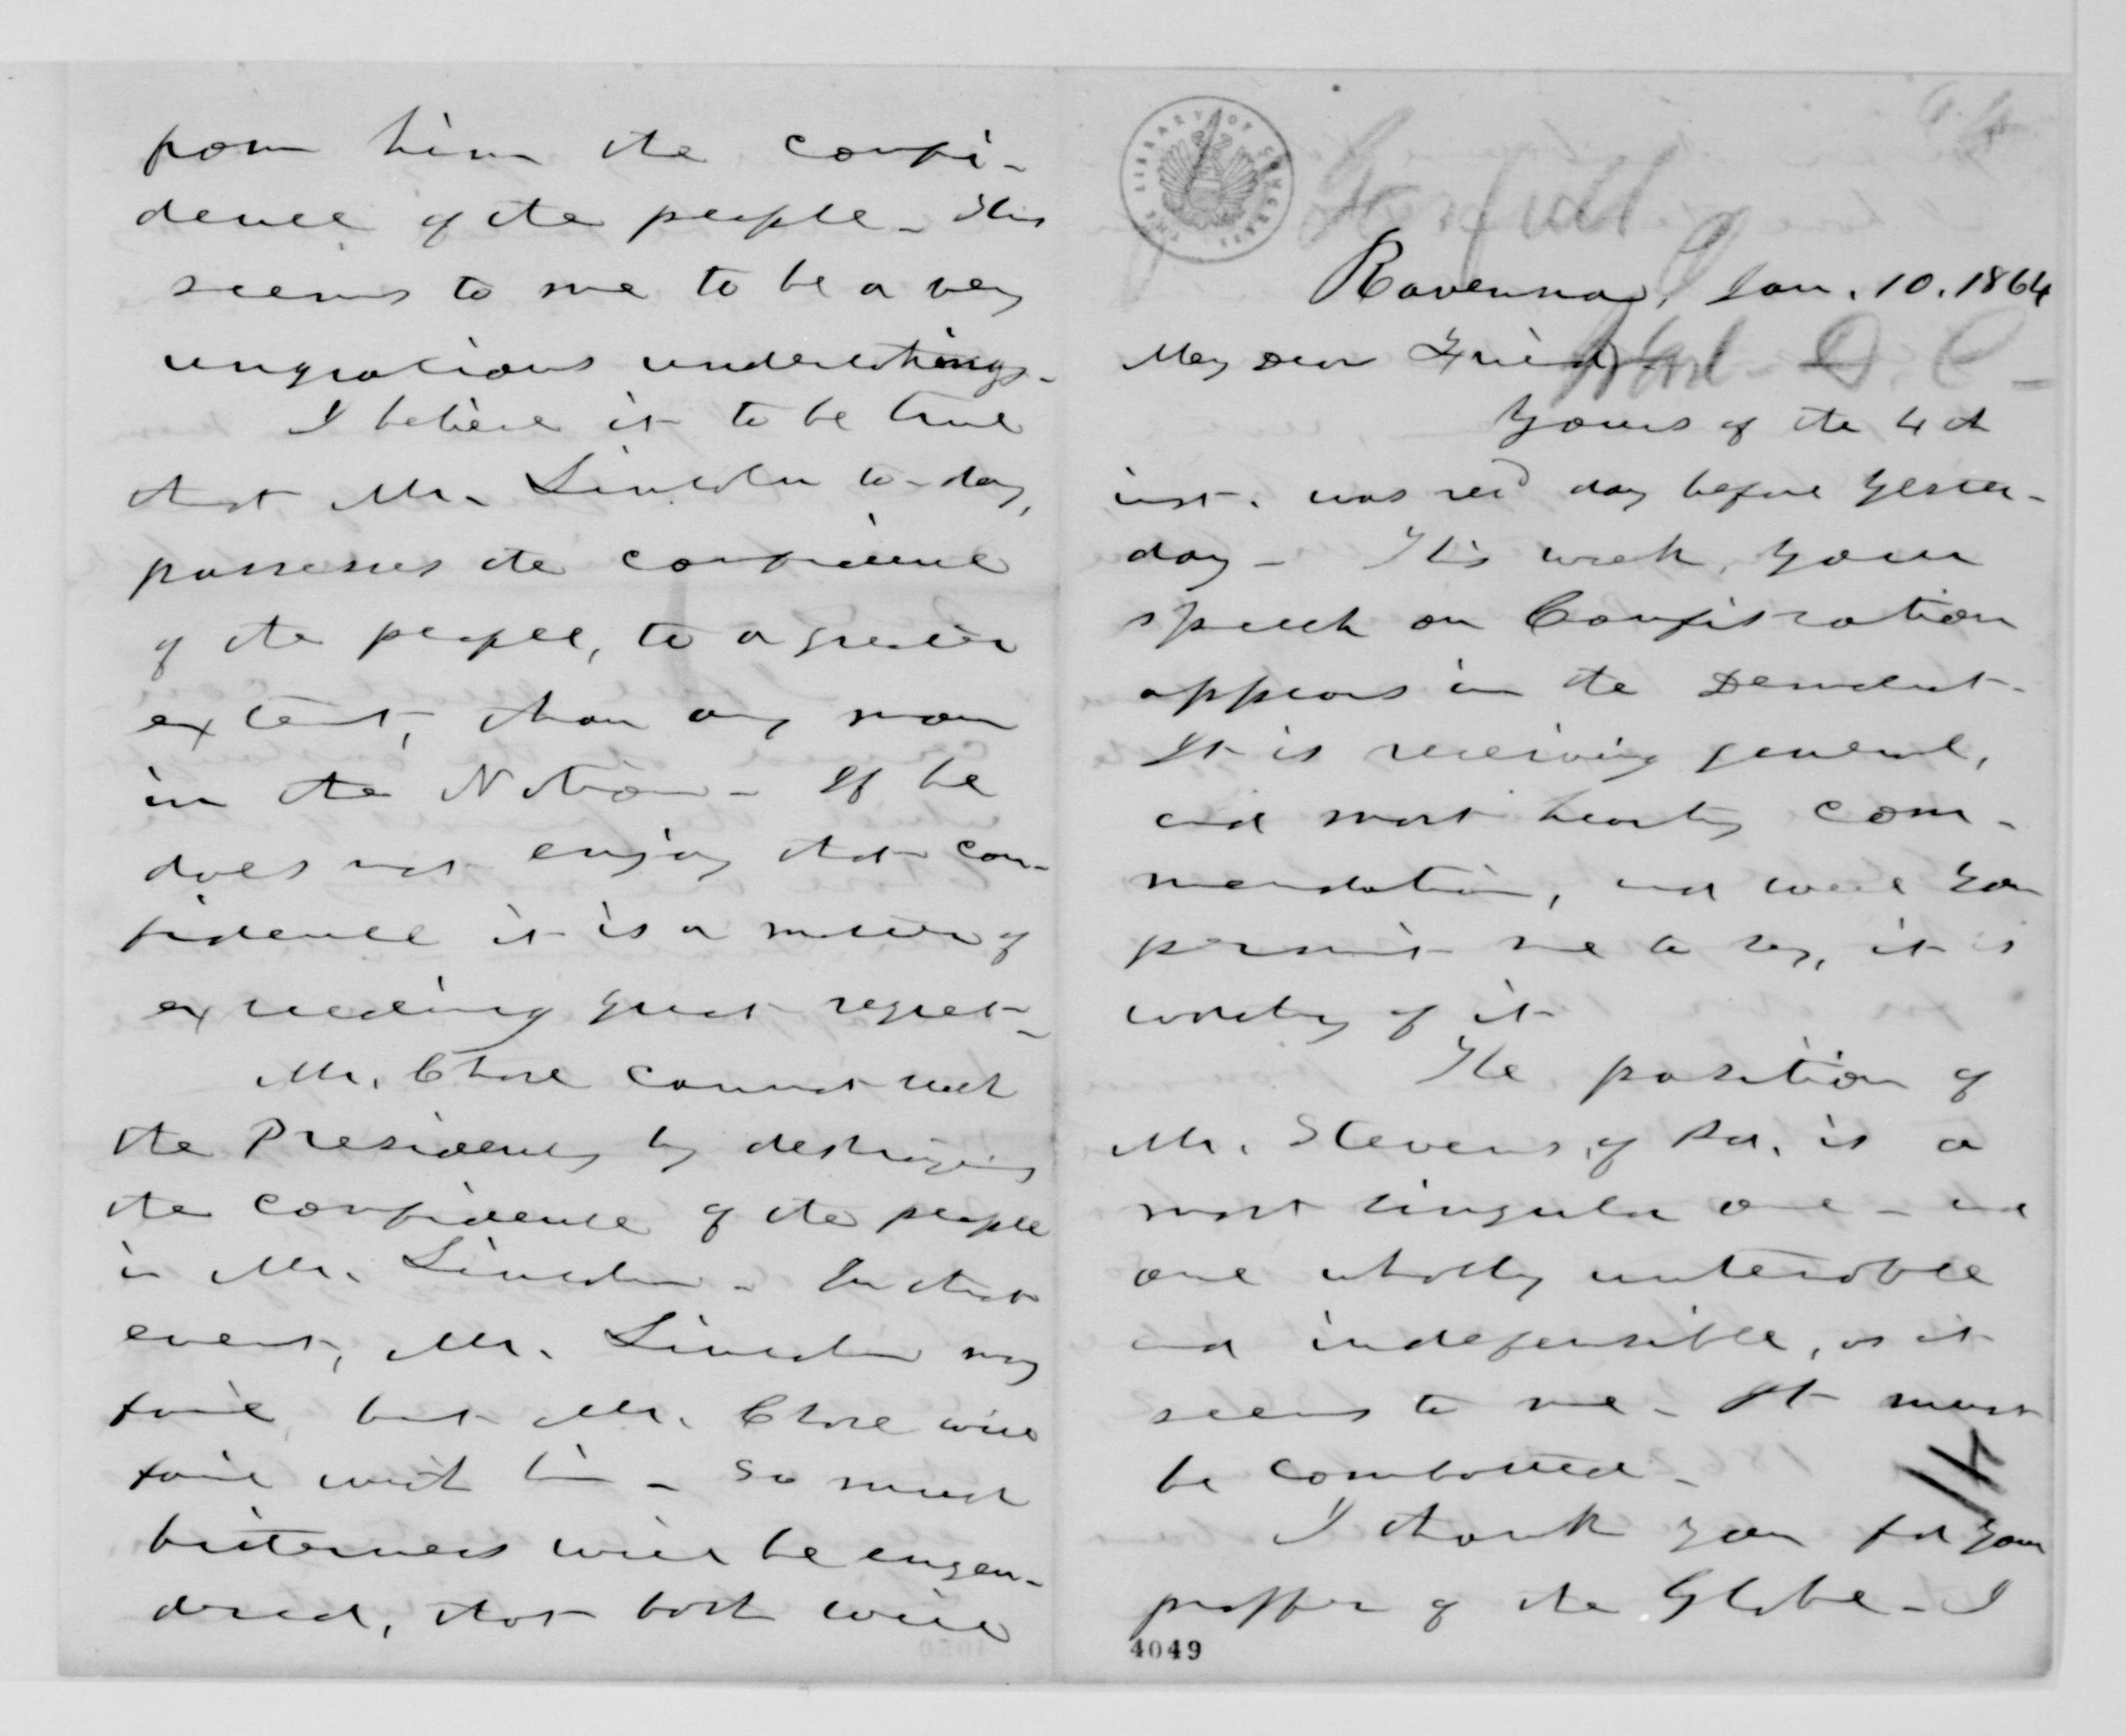 from him the confi-
dence of the people - This
seems to me to be a very
ungracious undertaking.
I believe it to be true
that Mr. Lincoln to-day,
possesses the confidence
of the people, to a greater
extent, than any man
in the Nation - If he
does not enjoy that con-
fidence it is a matter of
exceeding great regret -
Mr. Chase cannot reach
the Presidency by destroying
the confidence of the people
in Mr. Lincoln - In that
event, Mr. Lincoln may
fail, but Mr. Chase will
fail with him - So much
bitterness will be engen-
dered, that both will
THE LIBRARY OF CONGRESS
Garfield
Ravenna, Jan. 10. 1864
My Dear Friend
Wash - D. C -
Yours of the 4th
inst. was rec'd day before yester-
day - This week, your
speech on Confiscation
appears in the Democrat -
It is receiving general,
and most hearty com-
mendation, and will you
permit me to say, it is
worthy of it -
The position of
Mr. Stevens, of Pa. is a
most singular one - and
one wholly untenable
and indefensible, as it
seems to me - It must
be combatted -
I thank you for your
proffer of the Globe - I
4049